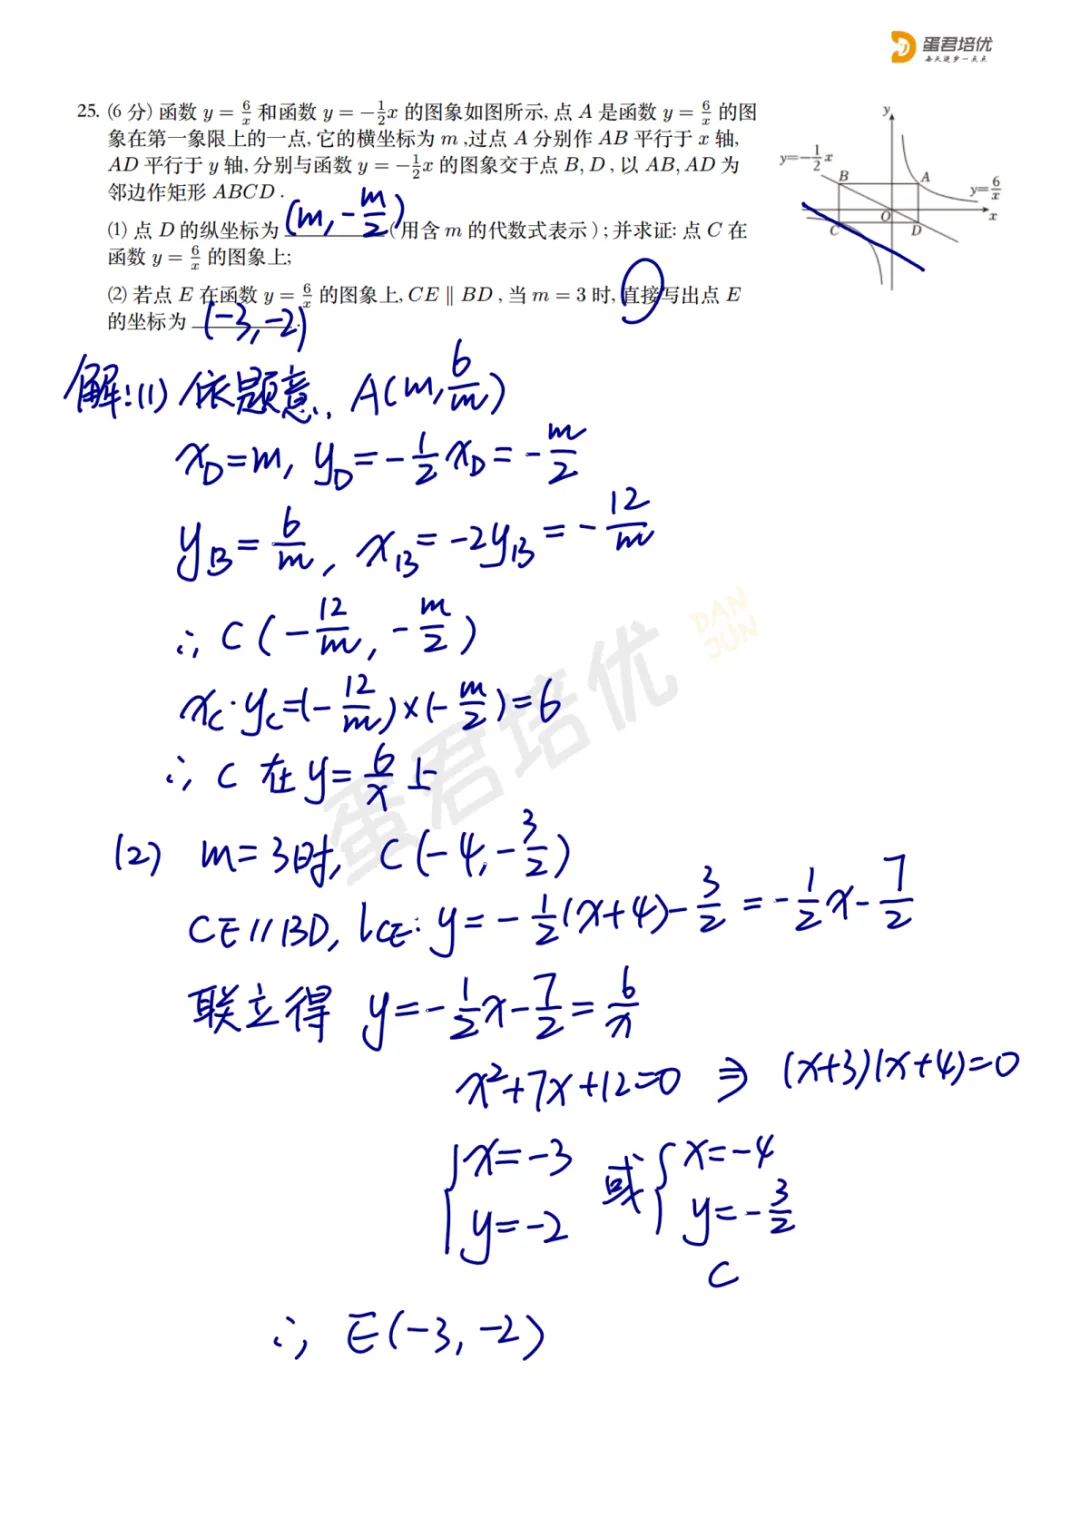 蛋君培优
每天进步一点点
25. (6 分) 函数 y = 6/x 和函数 y = −1/2 x 的图象如图所示, 点 A 是函数 y = 6/x 的图
象在第一象限上的一点, 它的横坐标为 m ,过点 A 分别作 AB 平行于 x 轴,
AD 平行于 y 轴, 分别与函数 y = −1/2 x 的图象交于点 B, D , 以 AB, AD 为
邻边作矩形 ABCD .
(1) 点 D 的纵坐标为 (m, −m/2) (用含 m 的代数式表示) ; 并求证: 点 C 在
函数 y = 6/x 的图象上;
(2) 若点 E 在函数 y = 6/x 的图象上, CE ∥ BD , 当 m = 3 时, 直接写出点 E
的坐标为 (−3, −2) .
y
y=−1/2 x
B
A
y=6/x
O
x
C
D
解:(1) 依题意, A(m, 6/m)
x_D=m, y_D=−1/2 x_D=−m/2
y_B=6/m, x_B=−2y_B=−12/m
∴ C(−12/m, −m/2)
x_C·y_C=(−12/m)×(−m/2)=6
∴ C 在 y=6/x 上
(2) m=3时, C(−4, −3/2)
CE//BD, l_CE: y=−1/2(x+4)−3/2=−1/2x−7/2
联立得 y=−1/2x−7/2=6/x
x²+7x+12=0 ⇒ (x+3)(x+4)=0
{x=−3 或 {x=−4
y=−2 y=−3/2
C
∴ E(−3, −2)
蛋君培优
DAN
JUN